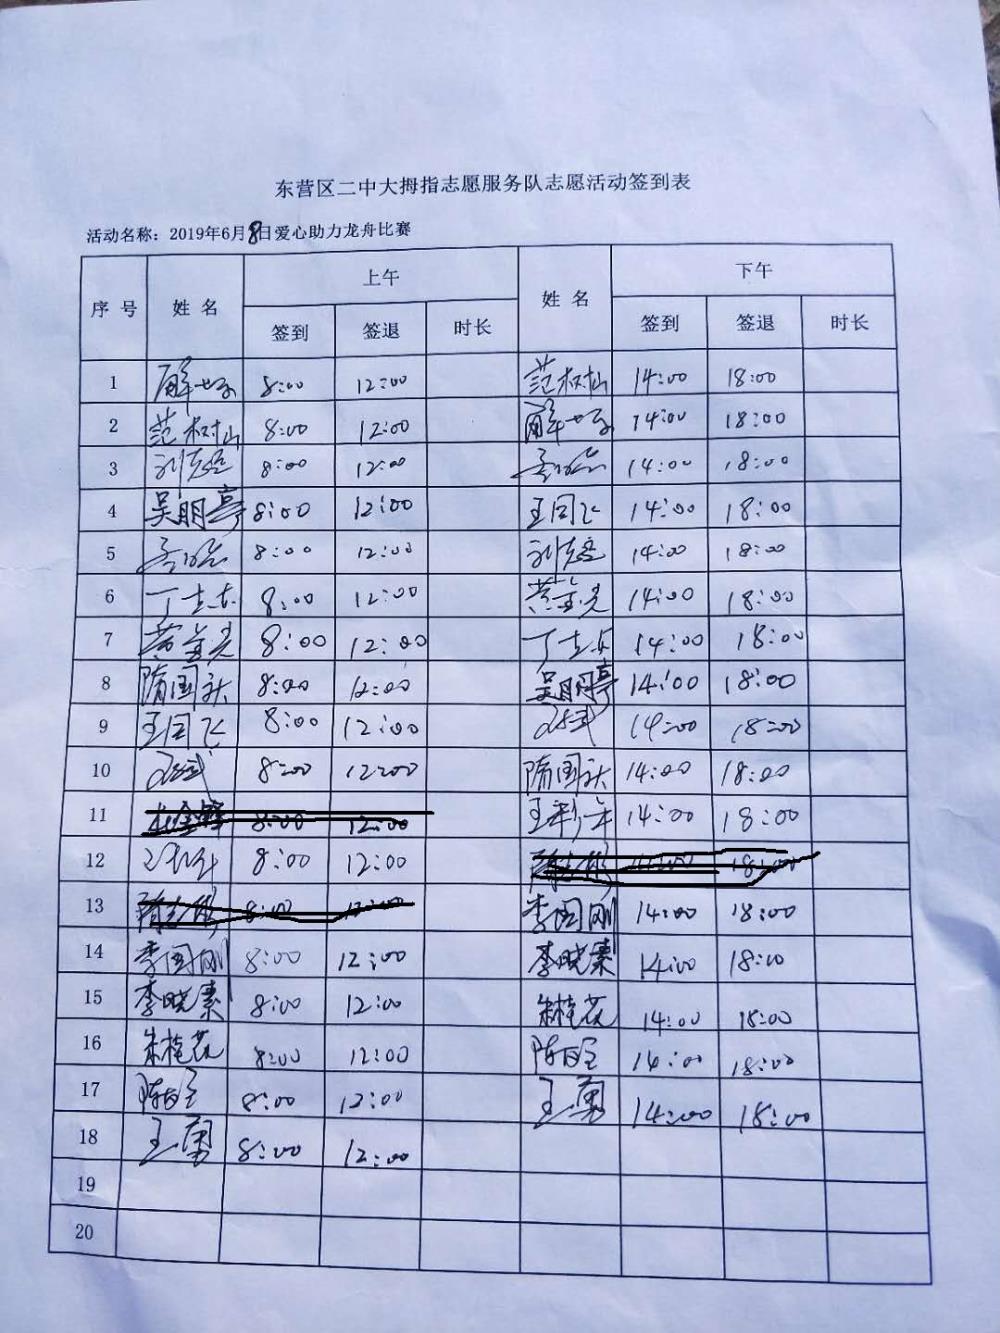 东营区二中大拇指志愿服务队志愿活动签到表
活动名称：2019年6月8日爱心助力龙舟比赛
序号 姓名 上午 姓名 下午
签到 签退 时长 签到 签退 时长
1 8:00 12:00 范树山 14:00 18:00
2 范树山 8:00 12:00 14:00 18:00
3 8:00 12:00 14:00 18:00
4 吴明亭 8:00 12:00 王同飞 14:00 18:00
5 8:00 12:00 14:00 18:00
6 8:00 12:00 黄金光 14:00 18:00
7 黄金光 8:00 12:00 14:00 18:00
8 隋国跃 8:00 12:00 吴明亭 14:00 18:00
9 王同飞 8:00 12:00 14:00 18:00
10 8:00 12:00 隋国跃 14:00 18:00
11 8:00 12:00 14:00 18:00
12 8:00 12:00 14:00 18:00
13 8:00 12:00 李国刚 14:00 18:00
14 李国刚 8:00 12:00 李晓素 14:00 18:00
15 李晓素 8:00 12:00 朱桂花 14:00 18:00
16 朱桂花 8:00 12:00 14:00 18:00
17 8:00 12:00 王勇 14:00 18:00
18 王勇 8:00 12:00
19
20